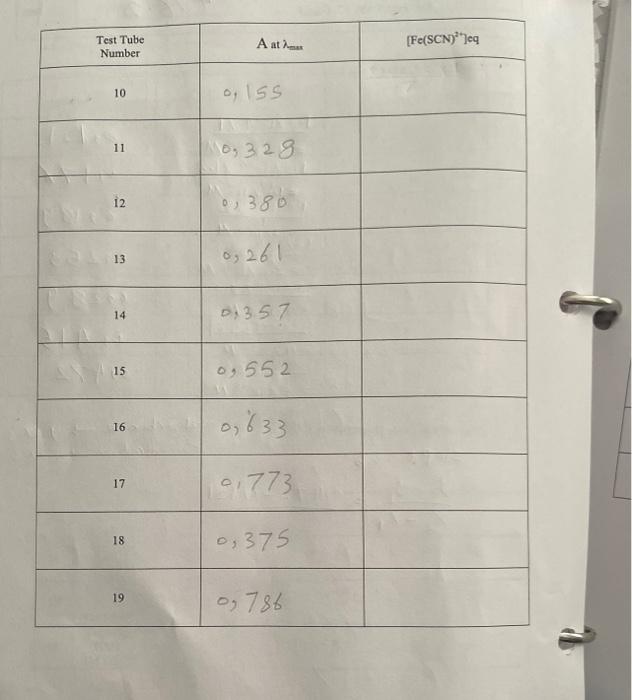 Test Tube Number A at λmax [Fe(SCN)²⁺]eq
10 0,155
11 0,328
12 0,380
13 0,261
14 0,357
15 0,552
16 0,633
17 0,773
18 0,375
19 0,786